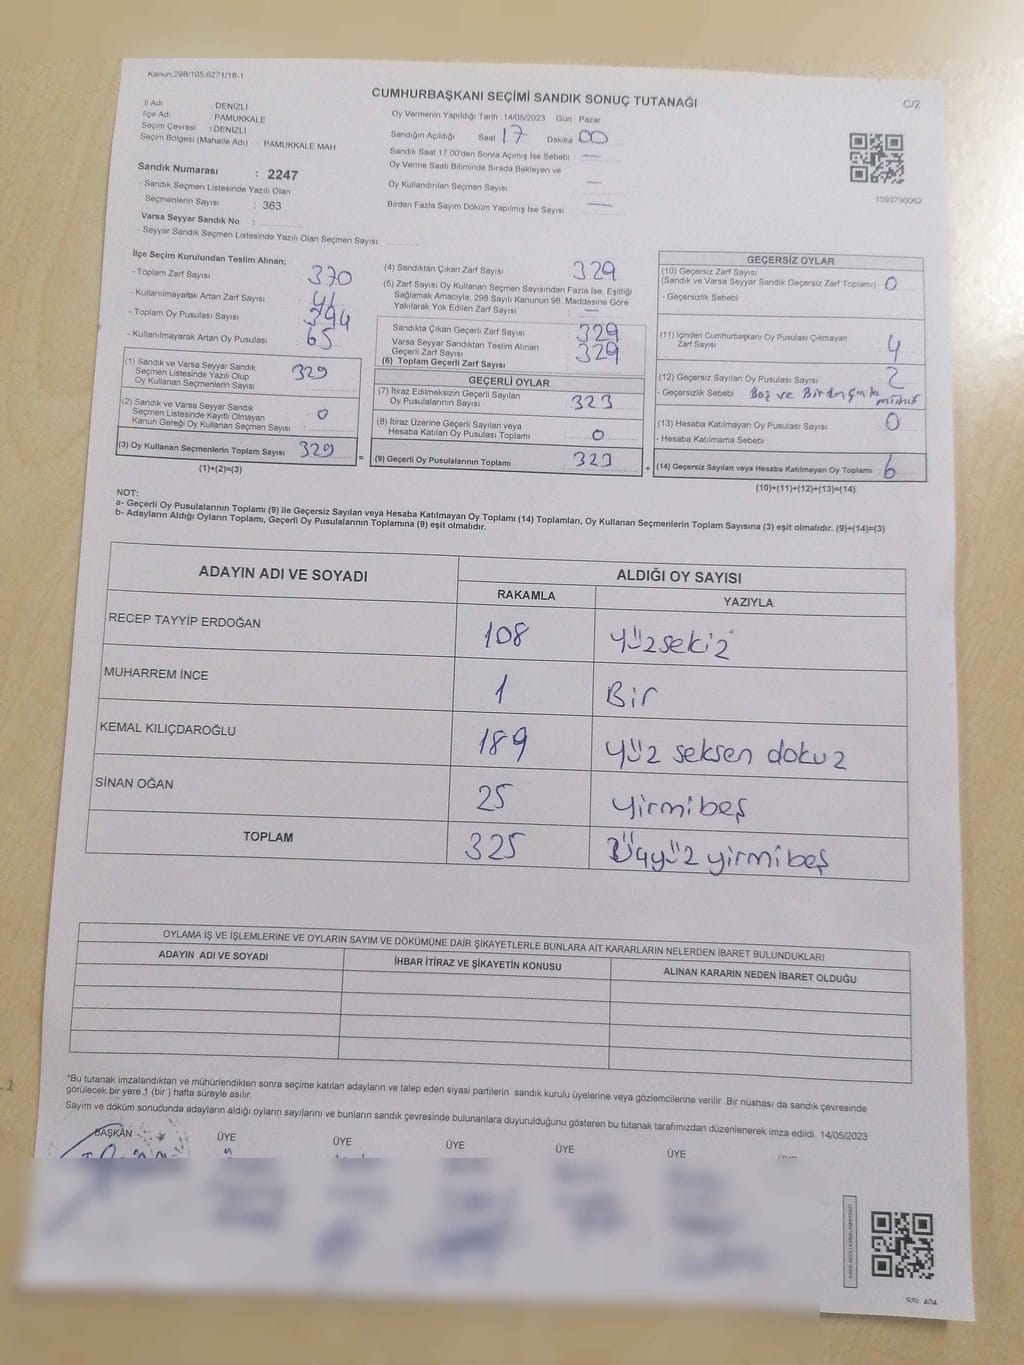 Kanun,298/105,6271/18-1
CUMHURBAŞKANI SEÇİMİ SANDIK SONUÇ TUTANAĞI
C/2
İl Adı : DENİZLİ
İlçe Adı : PAMUKKALE
Seçim Çevresi : DENİZLİ
Seçim Bölgesi (Mahalle Adı) : PAMUKKALE MAH
Oy Vermenin Yapıldığı Tarih 14/05/2023 Gün : Pazar
Sandığın Açıldığı Saat 17 Dakika 00
Sandık Saat 17:00'den Sonra Açımış İse Sebebi —
Oy Verme Saati Bitiminde Sırada Bekleyen ve
Oy Kullandırılan Seçmen Sayısı —
Birden Fazla Sayım Döküm Yapılmış İse Sayısı —
1093790062
Sandık Numarası : 2247
- Sandık Seçmen Listesinde Yazılı Olan
Seçmenlerin Sayısı : 363
Varsa Seyyar Sandık No :
- Seyyar Sandık Seçmen Listesinde Yazılı Olan Seçmen Sayısı:
İlçe Seçim Kurulundan Teslim Alınan;
- Toplam Zarf Sayısı 370
- Kullanılmayarak Artan Zarf Sayısı : 41
- Toplam Oy Pusulası Sayısı 394
- Kullanılmayarak Artan Oy Pusulası 65
(1) Sandık ve Varsa Seyyar Sandık
Seçmen Listesinde Yazılı Olup
Oy Kullanan Seçmenlerin Sayısı 329
(2) Sandık ve Varsa Seyyar Sandık
Seçmen Listesinde Kayıtlı Olmayan
Kanun Gereği Oy Kullanan Seçmen Sayısı : 0
(3) Oy Kullanan Seçmenlerin Toplam Sayısı 329
(1)+(2)=(3)
(4) Sandıktan Çıkan Zarf Sayısı 329
(5) Zarf Sayısı Oy Kullanan Seçmen Sayısından Fazla İse, Eşitliği
Sağlamak Amacıyla; 298 Sayılı Kanunun 98. Maddesine Göre
Yakılarak Yok Edilen Zarf Sayısı : —
Sandıkta Çıkan Geçerli Zarf Sayısı : 329
Varsa Seyyar Sandıktan Teslim Alınan
Geçerli Zarf Sayısı
(6) Toplam Geçerli Zarf Sayısı : 329
GEÇERLİ OYLAR
(7) İtiraz Edilmeksizin Geçerli Sayılan
Oy Pusulalarının Sayısı : 323
(8) İtiraz Üzerine Geçerli Sayılan veya
Hesaba Katılan Oy Pusulası Toplamı : 0
(9) Geçerli Oy Pusulalarının Toplamı : 323
GEÇERSİZ OYLAR
(10) Geçersiz Zarf Sayısı
(Sandık ve Varsa Seyyar Sandık Geçersiz Zarf Toplamı) : 0
- Geçersizlik Sebebi
(11) İçinden Cumhurbaşkanı Oy Pusulası Çıkmayan
Zarf Sayısı 4
(12) Geçersiz Sayılan Oy Pusulası Sayısı : 2
- Geçersizlik Sebebi Boş ve Birden Çok mühür
(13) Hesaba Katılmayan Oy Pusulası Sayısı : 0
- Hesaba Katılmama Sebebi
(14) Geçersiz Sayılan veya Hesaba Katılmayan Oy Toplamı : 6
(10)+(11)+(12)+(13)=(14)
NOT:
a- Geçerli Oy Pusulalarının Toplamı (9) ile Geçersiz Sayılan veya Hesaba Katılmayan Oy Toplamı (14) Toplamları, Oy Kullanan Seçmenlerin Toplam Sayısına (3) eşit olmalıdır. (9)+(14)=(3)
b- Adayların Aldığı Oyların Toplamı, Geçerli Oy Pusulalarının Toplamına (9) eşit olmalıdır.
ADAYIN ADI VE SOYADI
ALDIĞI OY SAYISI
RAKAMLA YAZIYLA
RECEP TAYYİP ERDOĞAN 108 yüzsekiz
MUHARREM İNCE 1 Bir
KEMAL KILIÇDAROĞLU 189 yüz seksen dokuz
SİNAN OĞAN 25 yirmibeş
TOPLAM 325 Üçyüz yirmibeş
OYLAMA İŞ VE İŞLEMLERİNE VE OYLARIN SAYIM VE DÖKÜMÜNE DAİR ŞİKAYETLERLE BUNLARA AİT KARARLARIN NELERDEN İBARET BULUNDUKLARI
ADAYIN ADI VE SOYADI İHBAR İTİRAZ VE ŞİKAYETİN KONUSU ALINAN KARARIN NEDEN İBARET OLDUĞU
"Bu tutanak imzalandıktan ve mühürlendikten sonra seçime katılan adayların ve talep eden siyasi partilerin sandık kurulu üyelerine veya gözlemcilerine verilir .Bir nüshası da sandık çevresinde
görülecek bir yere 1 (bir ) hafta süreyle asılır.
Sayım ve döküm sonucunda adayların aldığı oyların sayılarını ve bunların sandık çevresinde bulunanlara duyurulduğunu gösteren bu tutanak tarafımızdan düzenlenerek imza edildi. 14/05/2023
BAŞKAN ÜYE ÜYE ÜYE ÜYE ÜYE